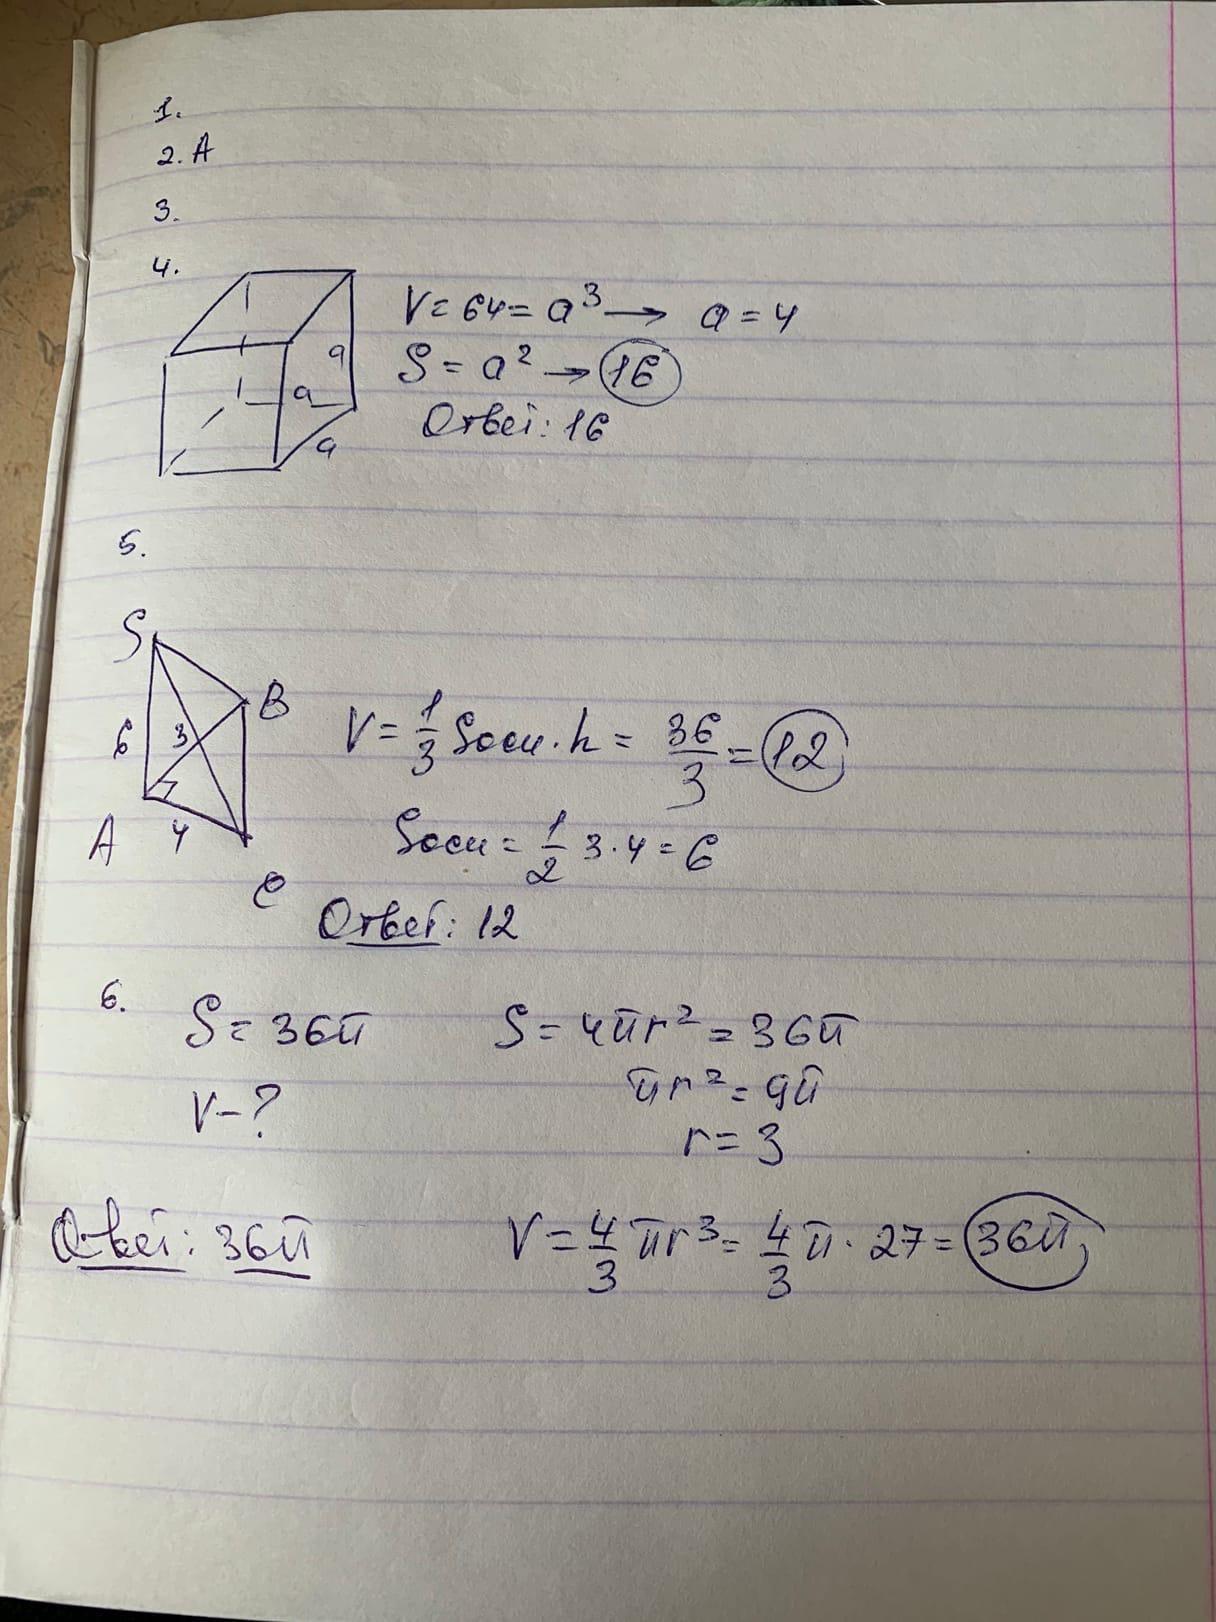 1.
2. A
3.
4.
V = 64 = a³ → a = 4
S = a² → 16
Ответ: 16
a
a
a
5.
S
6 3 B
V = 1/3 Sосн · h = 36/3 = 12
A 4
Sосн = 1/2 3 · 4 = 6
C
Ответ: 12
6.
S = 36π S = 4πr² = 36π
V - ? πr² = 9π
r = 3
Ответ: 36π V = 4/3 πr³ = 4/3 π · 27 = 36π